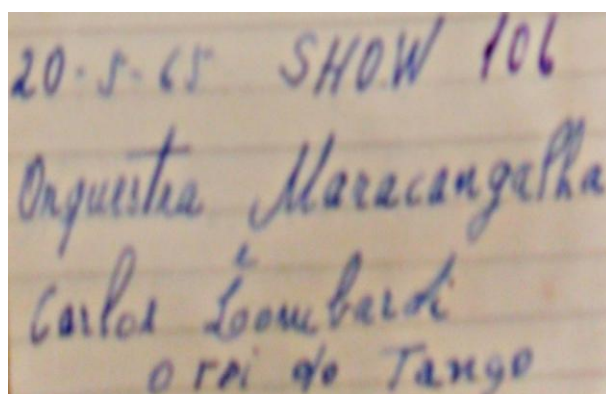 20-5-65 SHOW 106
Orquestra Maracangalha
e
Carlos Loombardi
o rei do Tango